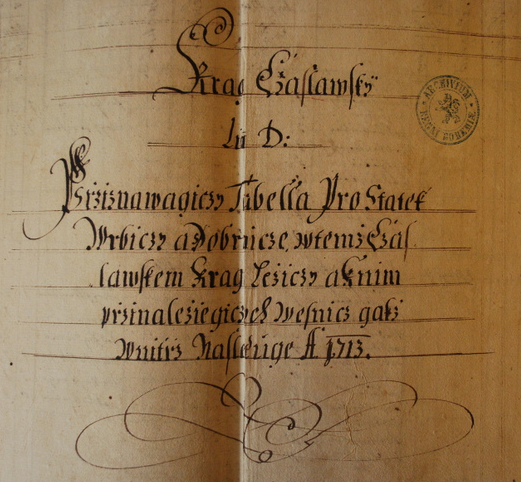 Krag Cžaslawsky
Lit D:
Pržiznawagiczy Tabella Pro Statek
Wrbiczy a Dobrucze, wtemž Cžas
lawskem Krag Ležiczy a knim
pržinaležiegiczych Wesnicz gakž
wnitrž Nasleduge A 1713.
ARCHIVUM
REGNI BOHEMIÆ